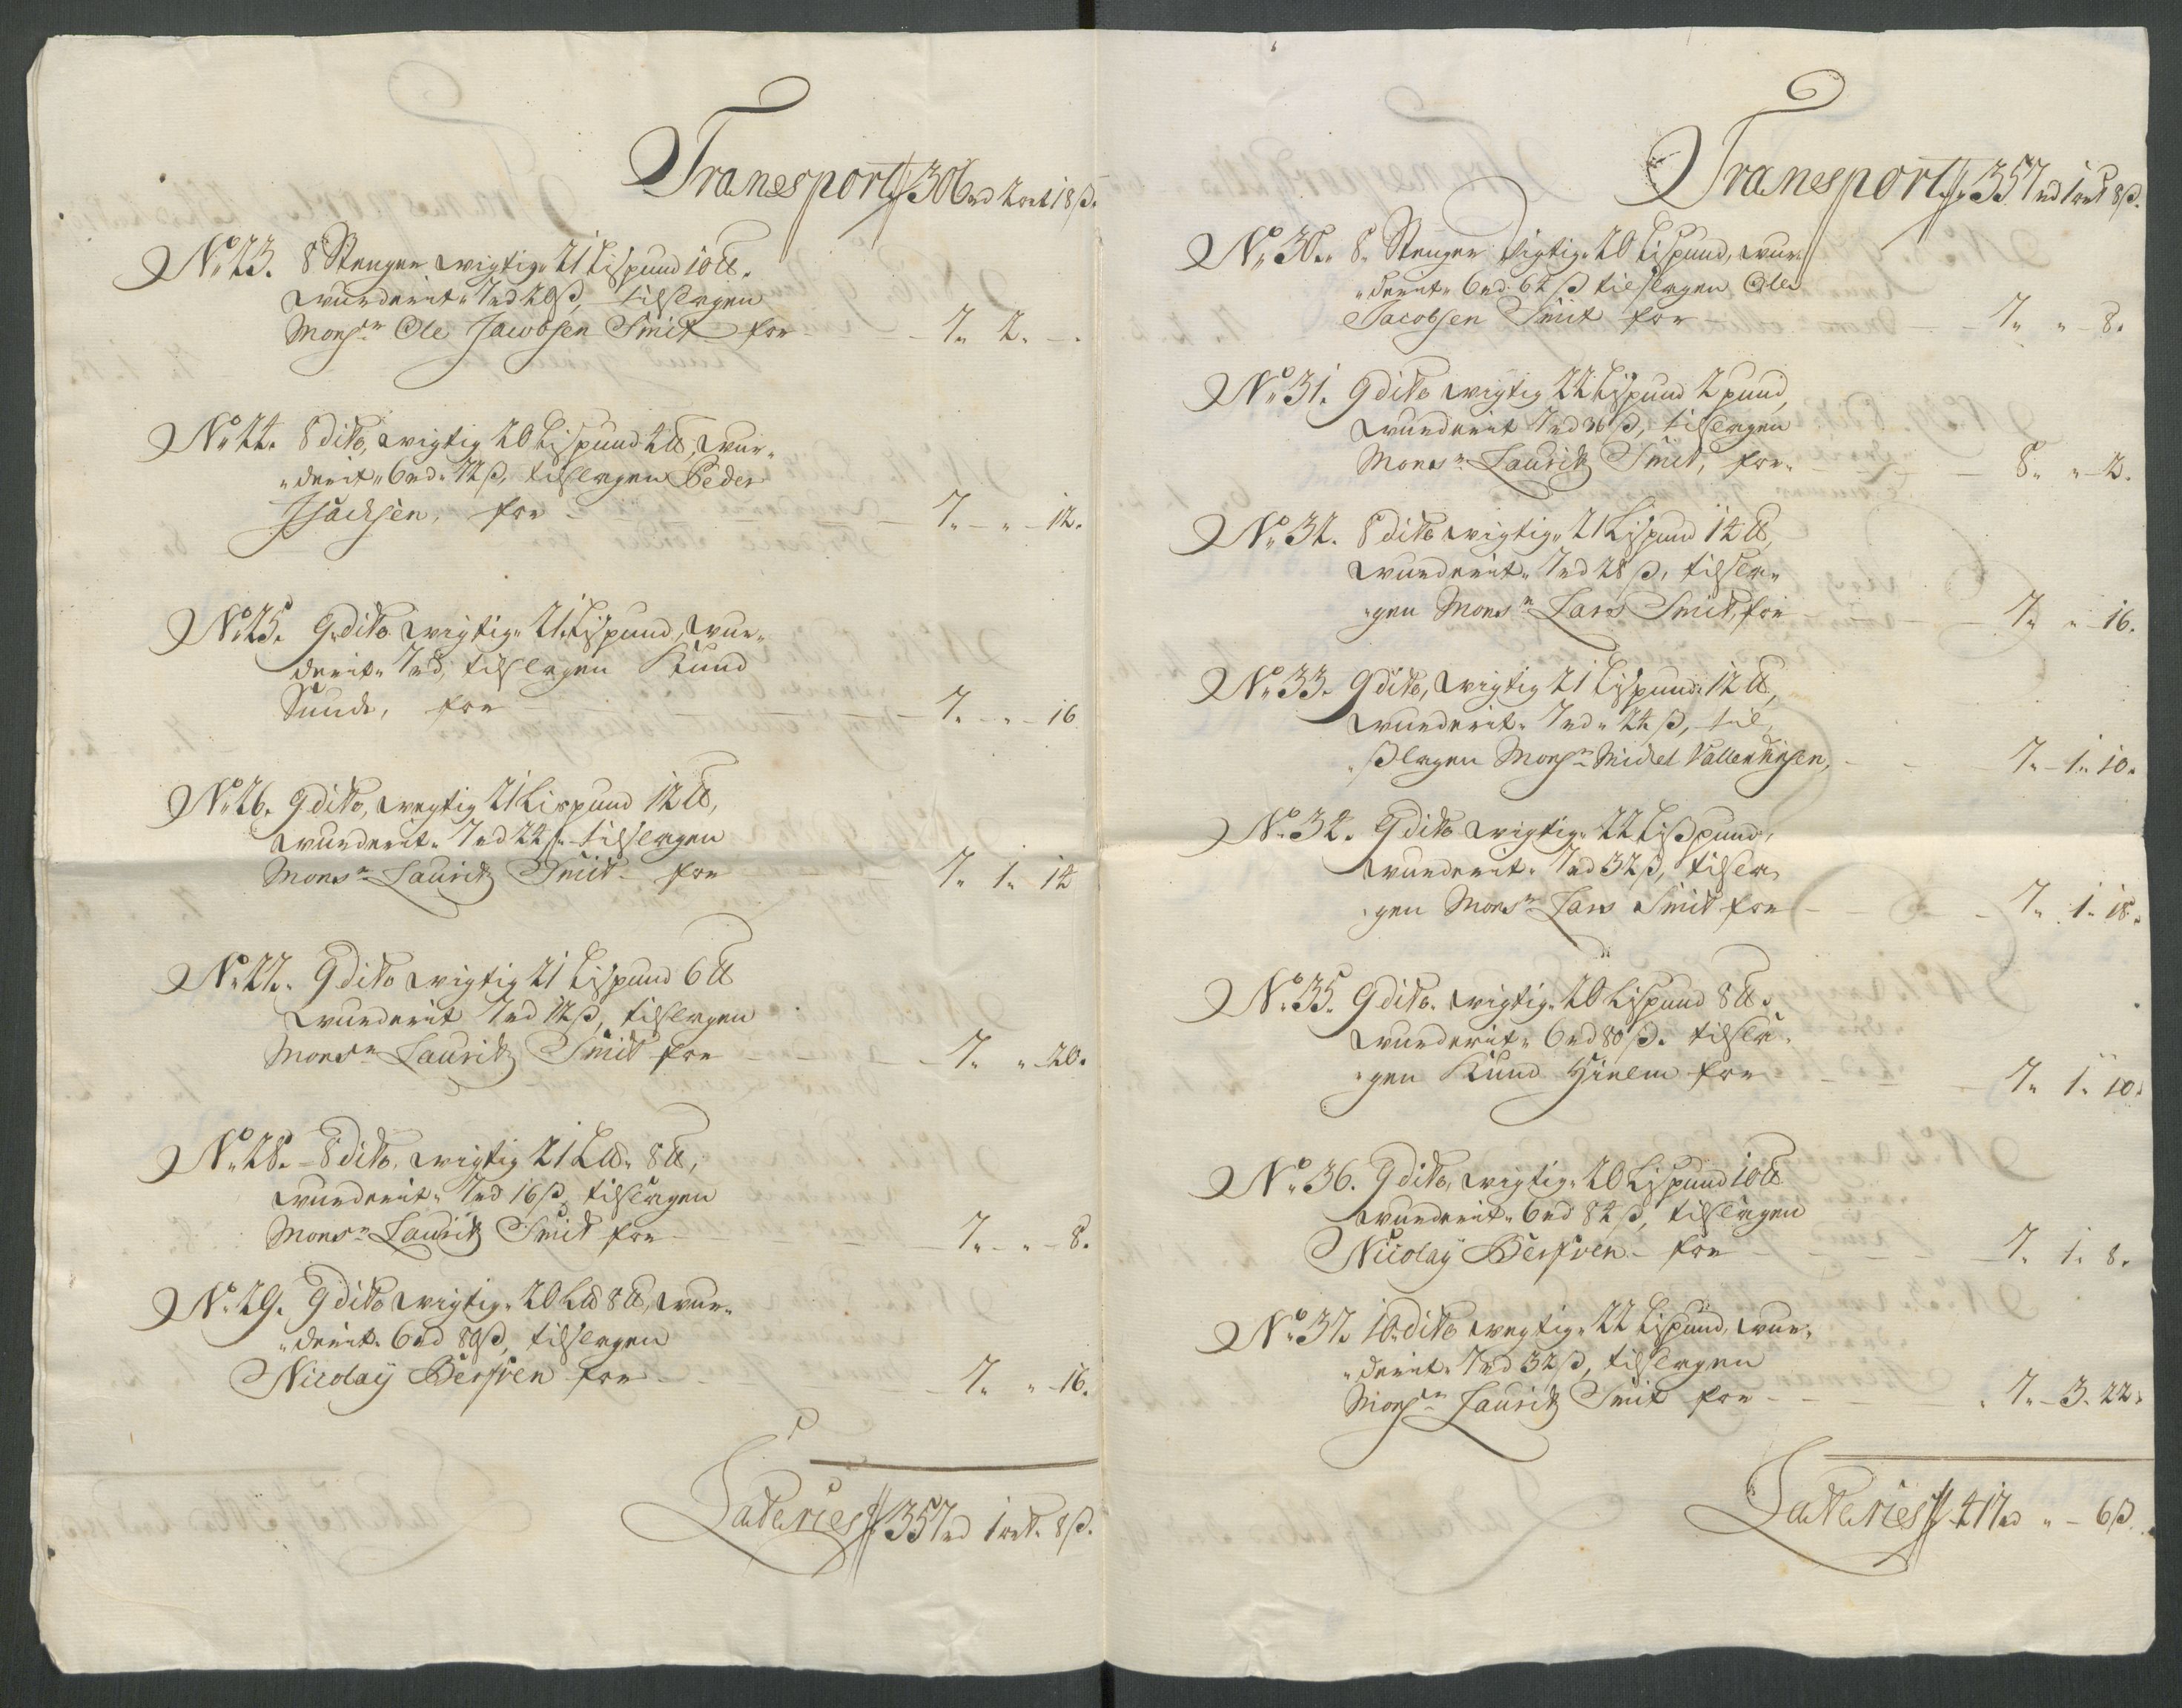 Transport 306 rd 2 ort 18 ß.
No 23. 8 Stenger wigtig 21 Lispund 10 ℔.
wurderit 7 rd 20 ß, tilslagen
Monsr Ole Jacobsen Smit for 7. 2. -.
No 24. 8 dito, wigtig 20 Lispund 4 ℔, wur-
derit 6 rd 72 ß, tilslagen Peder
Isachsen, for 7. " 12.
No 25. 9 dito wigtig 21 Lispund, wur-
derit 7 rd, tilslagen Knud
Sunde, for 7. " 16
No 26. 9 dito, wegtig 21 Lispund 12 ℔,
wurderit 7 rd 24 ß tilslagen
Monsr Lauritz Smit for 7. 1. 14
No 27. 9 dito wigtig 21 Lispund 6 ℔
wurderit 7 rd 12 ß, tilslagen
Monsr Lauritz Smit for 7. " 20.
No 28. 8 dito, wigtig 21 L℔ 8 ℔,
wurderit 7 rd 16 ß, tilslagen
Monsr Lauritz Smit for 7. " 8.
No 29. 9 dito wigtig 20 L℔ 8 ℔, wur-
derit 6 rd 80 ß, tilslagen
Nicolaÿ Bersven for 7. " 16.
Lateries 357 rd 1 ort 8 ß.
Transport 357 rd 1 ort 8 ß.
No 30. 8 Stenger vigtig 20 Lispund, wur-
derit 6 rd 64 ß tilslagen Ole
Jacobsen Smit for 7. " 8.
No 31. 9 dito wigtig 22 Lispund 2 pund,
wurderit 7 rd 36 ß, tilslagen
Monsr Lauritz Smit, for 8. " 2.
No 32. 8 dito wigtig 21 Lispund 14 ℔,
wurderit 7 rd 28 ß, tilsla-
gen Monsr Lars Smit, for 7. " 16.
No 33. 9 dito, wigtig 21 Lispund 12 ℔,
wurderit 7 rd 24 ß, til-
slagen Monsr Michel 7. 1. 10.
No 34. 9 dito wigtig 22 Lispund,
wurderit 7 rd 32 ß, tilsla-
gen Monsr Lars Smit for 7. 1. 18.
No 35. 9 dito. wigtig 20 Lispund 8 ℔.
wurderit 6 rd 80 ß. tilsla-
gen Knud for 7. 1. 10.
No 36. 9 dito, wigtig 20 Lispund 10 ℔
wurderit 6 rd 84 ß, tilslagen
Nicolaÿ Bersven for 7. 1. 8.
No 37. 10 dito wegtig 22 Lispund, wur-
derit 7 rd 32 ß, tilslagen
Monsr Lauritz Smit for 7. 3. 22.
Lateries 417 rd " 6 ß.